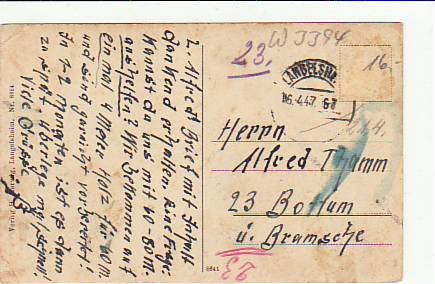 L. Alfred Brief mit Inhalt
dankend erhalten. Eine Frage:
Kannst du uns mit 40-80 M.
aushelfen? Wir bekommen auf
einmal 4 Meter Holz für 40 M.
und sind gereizt vorbereitet!
In 1-2 Monaten ist es dann
zu spät! Überlege mal, schnell!
Viele Grüsse!
Verlag H. Langelsheim. Nr. 8644
W 3394
23.
LANGELSH
16.4.47
16-
21.4.
Herrn
Alfred Thamm
23 Bottum
ü. Bramsche
8641